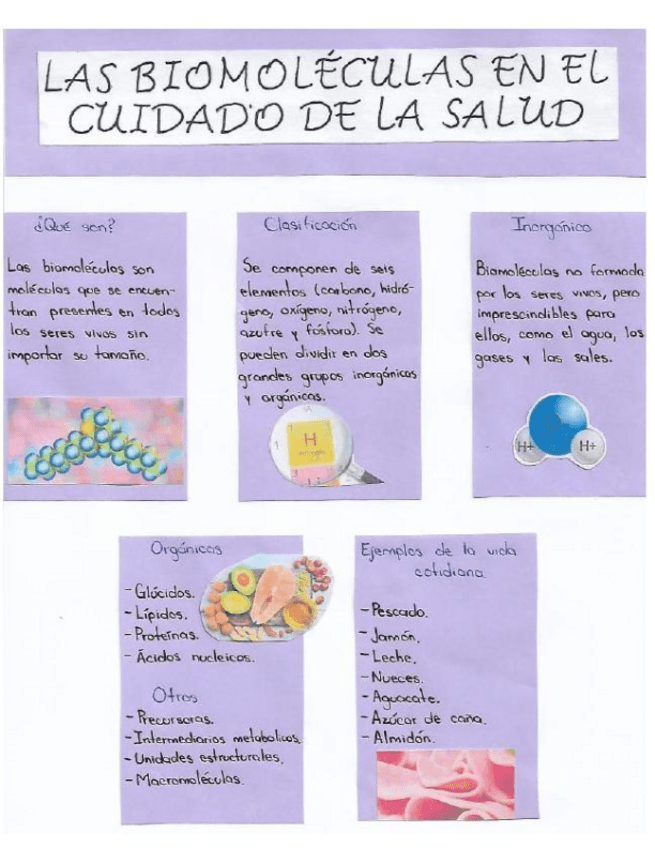 LAS BIOMOLÉCULAS EN EL
CUIDADO DE LA SALUD
¿Qué son?
Las biomoléculas son
moléculas que se encuen-
tran presentes en todos
los seres vivos sin
importar su tamaño.
Clasificación
Se componen de seis
elementos (carbono, hidró-
geno, oxígeno, nitrógeno,
azufre y fósforo). Se
pueden dividir en dos
grandes grupos inorgánicos
y orgánicas.
1
H
Inorgánico
Biomoléculas no formada
por los seres vivos, pero
imprescindibles para
ellos, como el agua, los
gases y las sales.
H+
H+
Orgánicas
-Glúcidos.
-Lípidos.
-Proteínas.
- Ácidos nucleicos.
Otros
-Precursoras.
-Intermediarios metabolicos.
-Unidades estructurales.
-Macromoléculas.
Ejemplos de la vida
cotidiana
-Pescado.
-Jamón.
-Leche.
-Nueces.
-Aguacate.
-Azúcar de caña.
-Almidón.